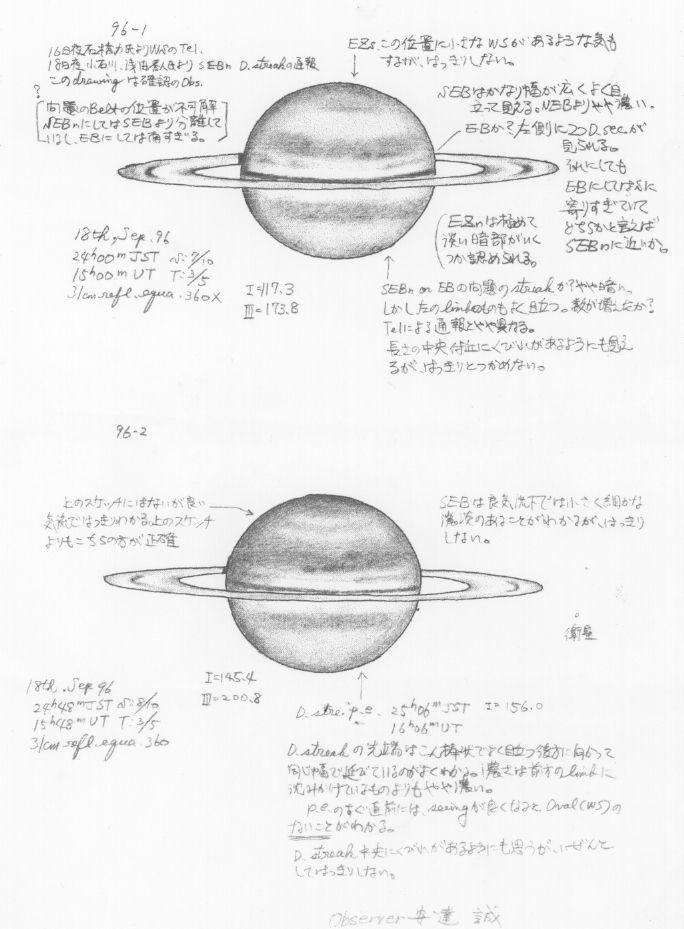 96-1
16日夜石橋力氏よりWSのTel.
18日夜、小石川、浅田秀人氏より SEBn D.streakの通報
このdrawingは確認のObs.
?
問題のBeltの位置が不可解
SEBnにしてはSEBより分離して
いるし、EBにしては南すぎる。
EZs.この位置に小さなWSがあるような気も
するが、はっきりしない。
SEBはかなり幅が広くよく目
立って見える。NEBよりやや濃い。
EBか?左側に20 D.sec.が
見られる。
それにしても
EBにしてはSに
寄りすぎていて
どちらかと言えば
SEBnに近いか。
EZnは極めて
淡い暗部がいく
つか認められる。
18th, Sep. 96
24h00m JST S:7/10
15h00m UT T:3/5
31cm.refl.equa.360X
I=117.3
III=173.8
SEBn or EBの問題のstreakか?やや暗い。
しかし左のlimbのものもよく目立つ。数が増えたか?
Telによる通報とやや異なる。
長さの中央付近にくびれがあるようにも見え
るが、はっきりとつかめない。
96-2
上のスケッチにはないが良い
気流ではっきりわかる。上のスケッチ
よりもこちらの方が正確
SEBは良気流下では小さく細かな
濃淡のあることがわかるが、はっきり
しない。
衛星
18th. Sep 96
24h48m JST S:8/10
15h48m UT T:3/5
31cm refl.equa.360
I=145.4
III=200.8
D. stre. p.e. 25h06m JST I=156.0
16h06m UT
D. streakの先端はこん棒状でよく目立つ後方に向かって
同じ幅で延びているのがよくわかる。濃さは前方のlimbに
沈みかけているものよりもやや濃い。
p.e.のすぐ直前には、seeingが良くなると Oval(WS)の
ないことがわかる。
D. streak中央にくびれがあるようにも思うが、いぜんと
してはっきりしない。
Observer 安達 誠